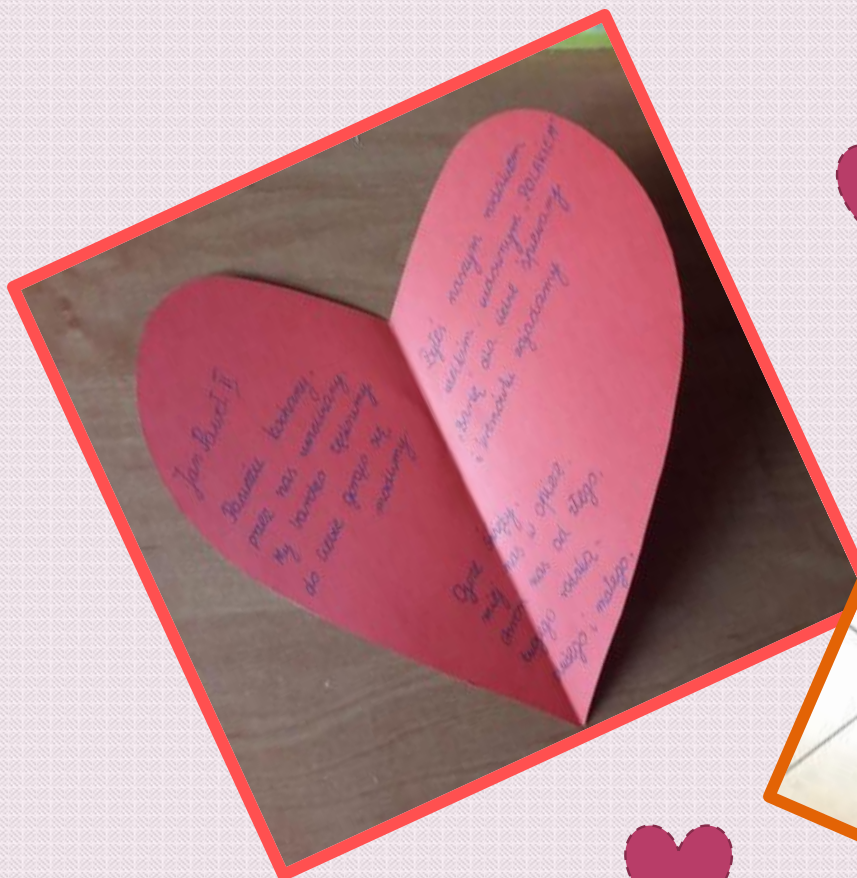 Jan Paweł II
Papieżu kochany,
przez nas uwielbiany
My bardzo tęsknimy
do ciebie gorąco się
modlimy
Byłeś naszym rodakiem
wielkim walecznym "POLAKIEM"
Barkę dla ciebie śpiewamy
i kremówki zjadamy
Ojcze Boży,
miej nas w opiece.
chroń nas od złego.
twego rodaka.
dużego i małego.